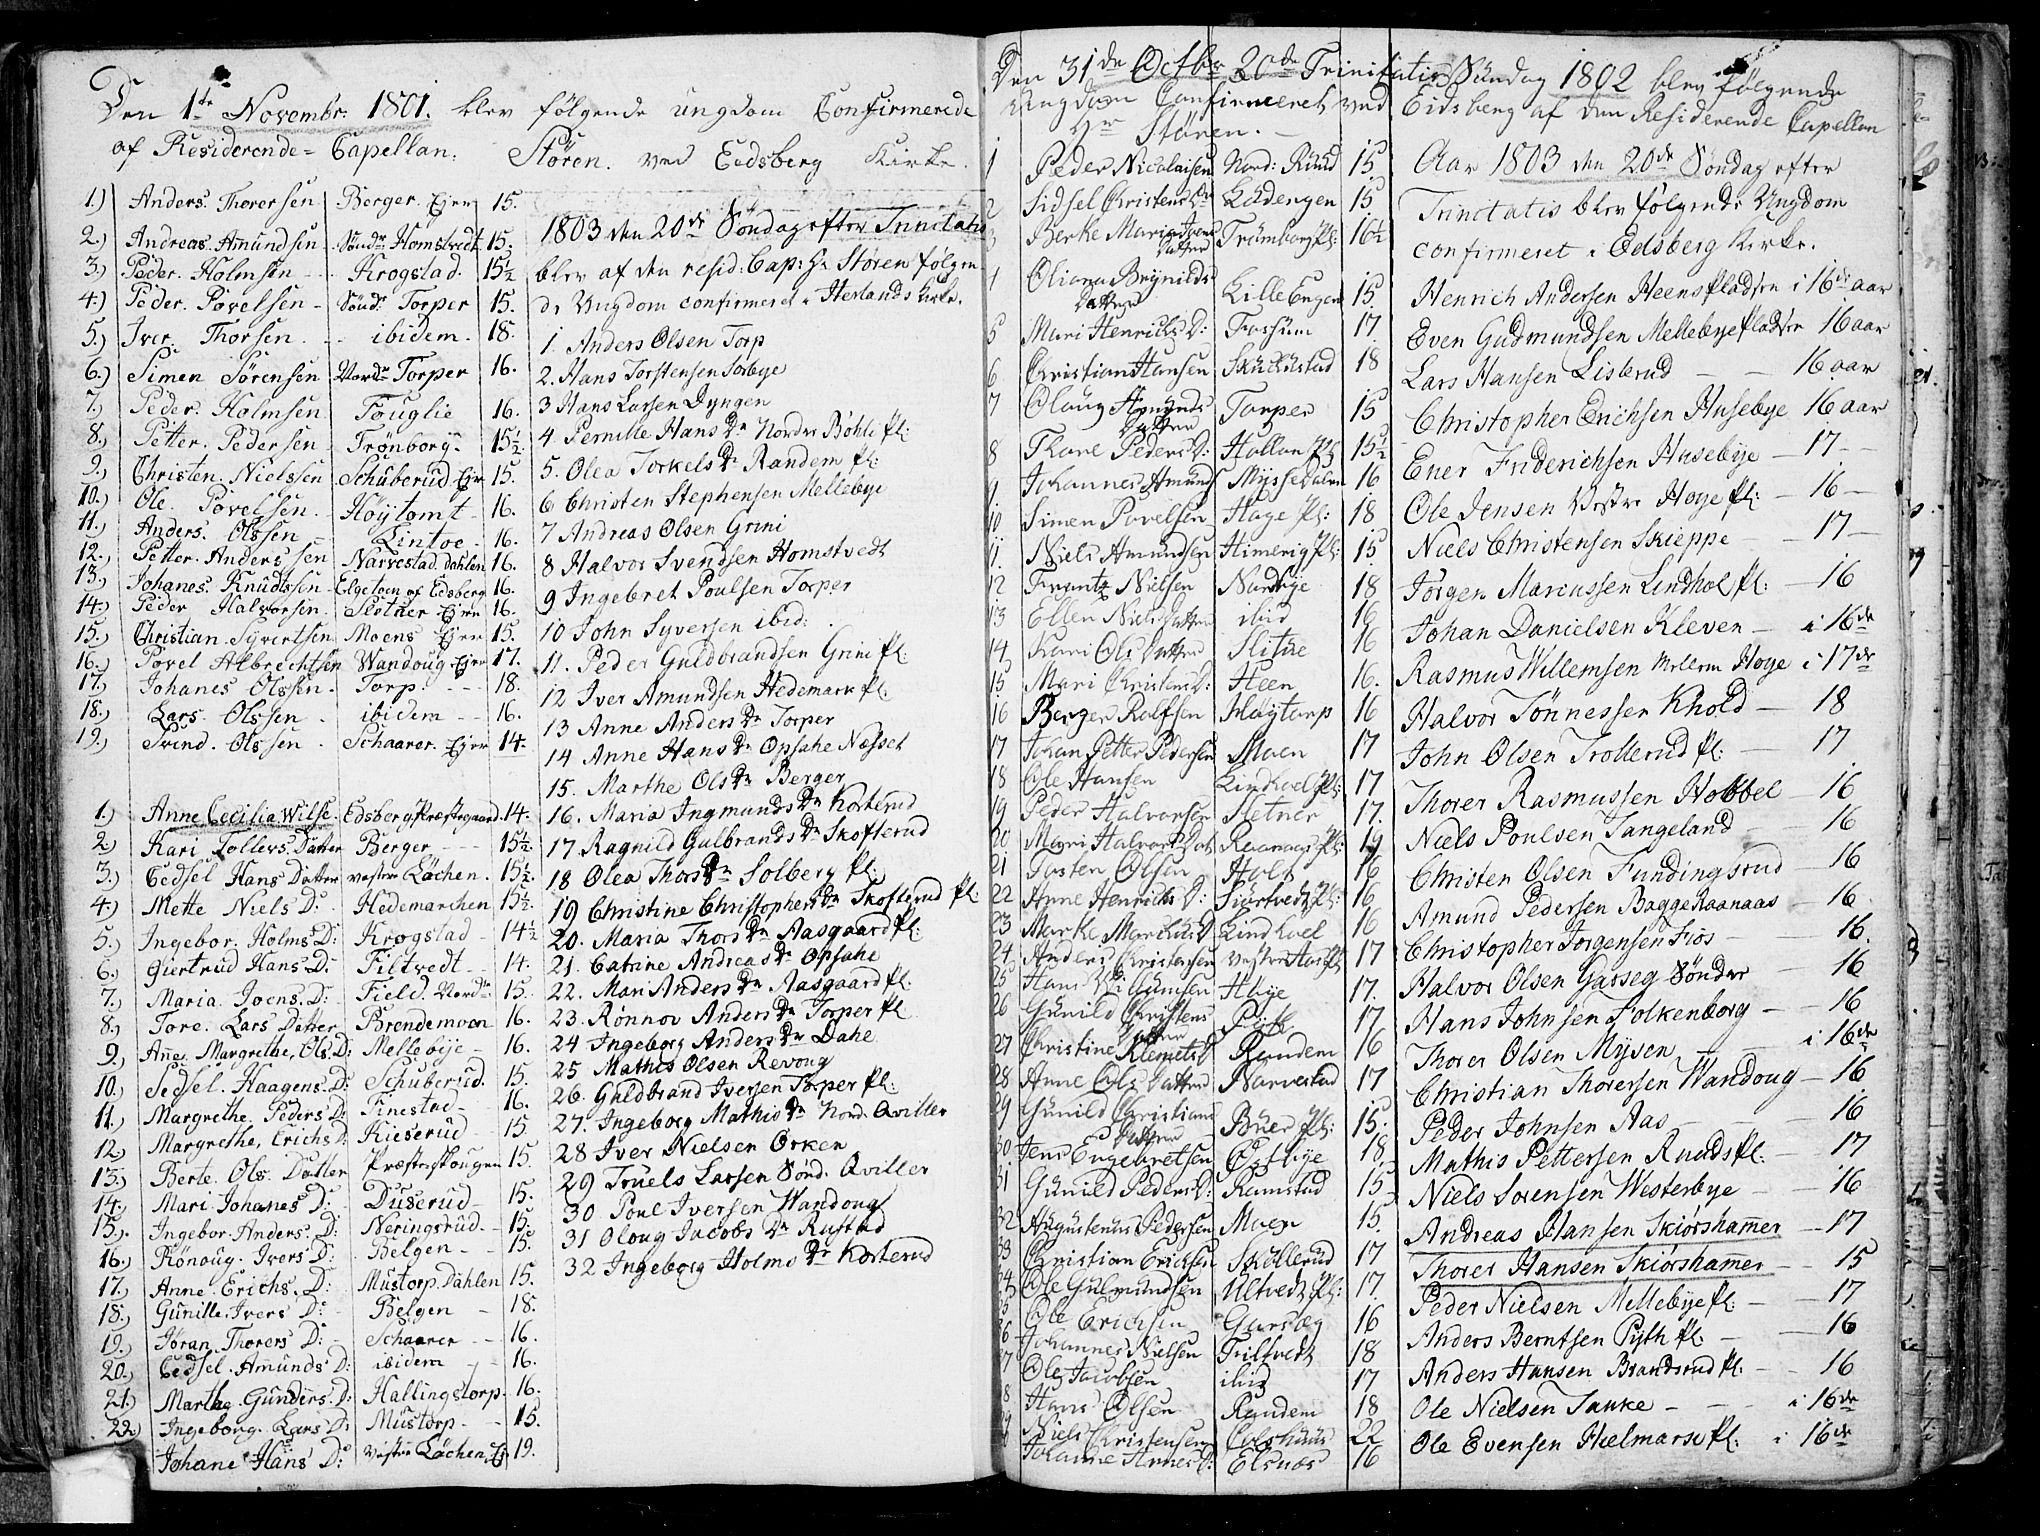 Den 1ste Novembr. 1801. blev følgende ungdom Confirmerede
af Residerende=Capellan. Stören. ved Eedsberg Kirke.
1.) Anders. Thorersen Berger. Ejer 15.
2.) Andreas. Amundsen Söndr Homstvedt 15.
3.) Peder. Holmsen Krogstad. 15½
4.) Peder. Povelsen Söndr Torper 15.
5.) Iver. Thorsen. ibidem. 18.
6.) Simen Sörensen Nordr Torper 16.
7.) Peder. Holmsen Fouglie 16.
8.) Petter. Pedersen Trönborg. 15½.
9.) Christen. Nielssen Schuberud Ejer 15.
10.) Ole. Povelsen. Höÿtomt 16.
11.) Anders. Olssen Lintoe 16.
12.) Petter. Anderssen Narvestad. Dahlen 16.
13.) Johanes. Knudtssen Elgetoen af Edsberg 16.
14.) Peder Halvorsen Sletner Ejer 16.
15.) Christian. Syvertsen Moens Ejer 15.
16.) Povel Albrechtsen Wandoug Ejer 17.
17.) Johanes Olssen. Torp. 18.
18.) Lars. Olssen. ibidem 16.
19.) Svend. Olssen. Schaarer. Ejer 14.
1.) Anne Cecilia Wilse. Edsberg Præstegaard. 14.
2.) Kari Tollevs. Datter Berger 15½.
3.) Cedsel Hans Datter vestre Lächen. 15½.
4.) Mette Niels D: Hedemarchen 15½.
5.) Ingebor. Holms D: Krogstad 14½
6.) Giertrud Hans D: Filtvedt 14.
7.) Maria. Joens. D: Field. Nordre 15.
8.) Tore. Lars Datter Brendemoen 16.
9.) Anne. Margrethe, Ols. D: Mellebÿe 16.
10.) Sedsel. Haagens. D: Schuberud. 15.
11.) Margrethe. Peders D: Finestad 16.
12.) Margrethe, Erichs D: Kieserud 15.
13.) Berte. Ols. Datter Præsteskougen 15.
14.) Mari. Johanes D: Duserud 15.
15.) Ingebor. Anders. D: Neringsrud. 15.
16.) Rönoug. Ivers D: Belgen 15.
17.) Anne. Erichs. D: Mustorp. Dahlen 15.
18.) Gunille. Ivers D: Belgen 18.
19.) Jöran. Thorers D: Schaarer 16.
20.) Cedsel. Amunds D: ibidem 16.
21.) Marthe. Gunders. D: Hallingstorp. 16.
22.) Ingeborg. Lars D: Mustorp. 15.
Johane Hans D: Vestre Lächen. Ej 19.
1803 den 20de Söndag efter Trinitatis
blev af den resid: Cap: Hr Stören følgen-
de Ungdom confirmeret i Herlands Kirke.
1. Anders Olsen Torp
2. Hans Torstensen Sorbye
3 Hans Larsen Dyngen
4. Pernille Hans Dr Nordre Böhle Pl:
5. Olea Torkels Dr Randem Pl:
6 Christen Stephensen Mellebye
7 Andreas Olsen Grini
8 Halvor Svendsen Homstvedt
9 Ingebret Poulsen Torper
10 John Syversen ibid:
11. Peder Guldbrandsen Grini Pl:
12 Iver Amundsen Hedemark Pl.
13 Anne Anders Dr Torper
14 Anne Hans Dr Opsahe Næsset
15. Marthe Ols Dr Berger
16. Maria Ingmunds Dr Korterud
17 Ragnild Gulbrands Dr Skofterud
18 Olea Thors Dr Solberg Pl:
19 Christine Christophers Dr Skofterud Pl
20. Maria Thors Dr Aasgaard Pl:
21. Catrine Andreas Dr Opsahe
22. Mari Anders Dr Aasgaard Pl:
23. Rönnov Anders Dr Torper Pl
24 Ingeborg Anders Dr Dahe
25 Mathis Olsen Revoug
26. Guldbrand Iversen Torper Pl:
27. Ingeborg Mathis Dr Nord. Qviller
28 Iver Nielsen Örken
29 Truels Larsen Sönd. Qviller
30 Poul Iversen Wandoug
31 Oloug Jacobs Dr Rustad
32 Ingeborg Holms Dr Korterud
Den 31de Octbr 20de Trinitatis Sündag 1802 blev følgende
Ungdom Confirmeret ved Eidsberg af den Residerende Capellan
Hr Stören.
1 Peder Nicolaisen Nord: Ruud 15.
2 Sidsel Christens Dr Ludengen 15
Berke Maria Ivers Datter Trömborg Pl: 16½
Oliana Brÿnilds Datter Lille Engen 15.
5 Mari Henrichs D: Fossum 17
6 Christian Hansen 18
7 Oloug Amunds Datter Torper 15
8 Thore Peders D: Hallan Pl 15½
9. Johannes Amunds Mysse Dalen 16
10 Simen Povelsen Hage Pl: 18
11. Niels Amundsen Himerig Pl: 15
12 Frantz Nielsen Nordbÿe 18
13 Ellen Niels Datter ibid 16
14 Kari Ols Datter Slitue 16
15 Mari Christens D: Heen 16.
16 Berger Rolfsen Haÿtorp 16
17 Johan Petter Pedersen Moen 17
18 Ole Hansen Lindhoel Pl: 17
19 Peder Halvorsen Sletner 17.
20 Mari Halvors Dat Raanaas Pl: 19
21 Torsten Olsen Holt 16
22 Anne Henrichs D: Siörtvedt Pl: 16
23 Marthe Marcus D: Lindhoel 16
24 Anders Christensen Vestre Aas Pl 17
25 Hans Gunsen 17.
26 Gunild Christens Datter 17
27 Christine Klemets D Randem 16
28 Anne Ols Datter Narvestad 17
29 Gunild Christians Datter Büer Pl: 15.
30 Jens Engebretsen Östbÿe 18.
31 Gunild Peders D: Ramstad 15
32 Augustenus Pedersen Moen 15.
33 Christian Ericksen Skallerud 17
34 Ole Gulmundsen Ultvedt Pl: 17.
Ole Erichsen Garseg 16
Johannes Nielsen Filtvedt 18
Ole Jacobsen ibid 17
Hans Olsen Randem 18
Niels Christensen 22
Johanne Annes D: Elsnes 16
Aar 1803 den 20de Söndag efter
Trinitatis blev følgende Ungdom
confirmeret i Edsberg Kirke.
Henrich Andersen Heens Pladsen i 16de aar
Even Gudmundsen Mellebye Pladsen 16 aar
Lars Hansen Lisberud 16 aar
Christopher Erichsen Husebye 16 aar
Ener Friderichsen Husebye 17
Ole Jensen Vestre Hoye Pl: 16
Niels Christensen Skieppe 17
Jörgen Marcussen Lindhol Pl: 16
Johan Danielsen Kleven i 16de
Rasmus Willemsen Mellem Hoye i 17de
Halvor Tönnessen Khold 18
John Olsen Trollerud Pl: 17
Thorer Rasmussen Hobbel 16
Niels Poulsen Tangeland 16
Christen Olsen Fundingsrud 16
Amund Pedersen Bagge Raanaas 16
Christopher Jörgensen Fios 16.
Halvor Olsen Gasseg Sönder 16
Hans Johnsen Folkenborg 16
Thorer Olsen Mÿsen i 16de
Christian Thorersen Wandoug 16
Peder Johnsen Aas 16
Mathis Pettersen Ruuds Pl. 17
Niels Sorensen Westerbye 16
Andreas Hansen Skiörshammer 17
Thorer Hansen Skiörshammer 15
Peder Nielsen Mellebye Pl: 17
Anders Berntsen Pyth Pl. 16
Anders Hansen Brandsrud Pl. 16
Ole Nielsen Tanke i 16de
Ole Evensen Hælmark Pl: i 16de